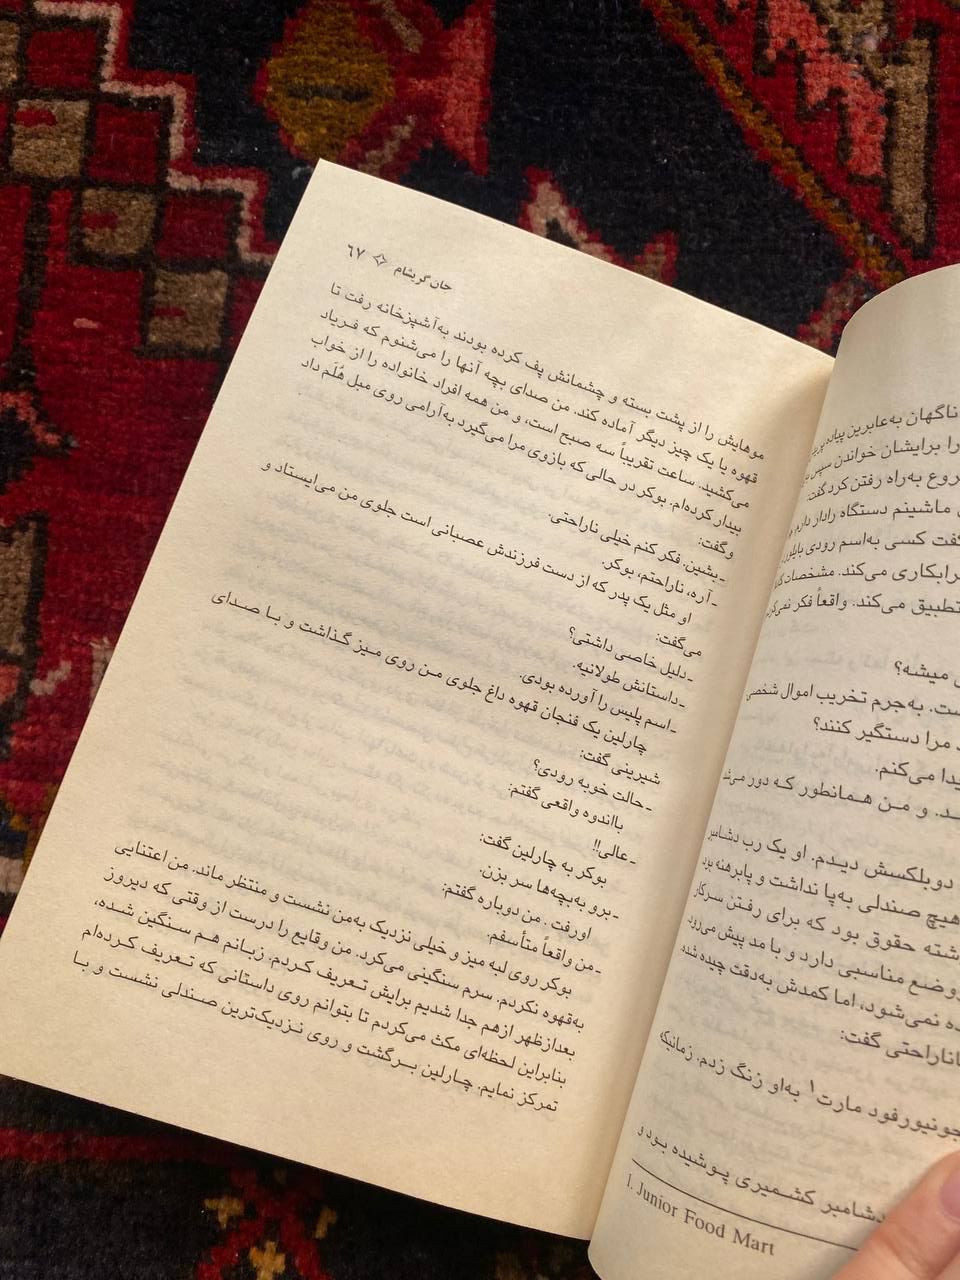 جان گریشام ✧ ۶۷
موهایش را از پشت بسته و چشمانش پف کرده بودند به‌آشپزخانه رفت تا
قهوه یا یک چیز دیگر آماده کند. من صدای بچه آنها را می‌شنوم که فریاد
می‌کشید. ساعت تقریباً سه صبح است، و من همه افراد خانواده را از خواب
بیدار کرده‌ام. بوکر در حالی که بازوی مرا می‌گیرد به‌آرامی روی مبل هُلَم داد
وگفت:
ـ بشین. فکر کنم خیلی ناراحتی.
ـ آره، ناراحتم، بوکر.
او مثل یک پدر که از دست فرزندش عصبانی است جلوی من می‌ایستاد و
می‌گفت:
ـ دلیل خاصی داشتی؟
ـ داستانش طولانیه.
ـ اسم پلیس را آورده بودی.
چارلین یک فنجان قهوه داغ جلوی من روی میز گذاشت و با صدای
شیرینی گفت:
ـ حالت خوبه رودی؟
بااندوه واقعی گفتم:
ـ عالی!!
بوکر به چارلین گفت:
ـ برو به‌بچه‌ها سر بزن.
اورفت. من دوباره گفتم:
ـ من واقعاً متأسفم.
بوکر روی لبه میز و خیلی نزدیک به‌من نشست و منتظر ماند. من اعتنایی
به‌قهوه نکردم. سرم سنگینی می‌کرد. من وقایع را درست از وقتی که دیروز
بعدازظهر ازهم جدا شدیم برایش تعریف کردم. زبانم هم سنگین شده،
بنابراین لحظه‌ای مکث می‌کردم تا بتوانم روی داستانی که تعریف کرده‌ام
تمرکز نمایم. چارلین برگشت و روی نزدیک‌ترین صندلی نشست و با
ناگهان به‌عابرین پیاده
را برایشان خواندن سپس
روع به‌راه رفتن کرد گفت:
ماشینم دستگاه رادار دارم
گفت کسی به‌اسم رودی بایلور
رابکاری می‌کند. مشخصات
تطبیق می‌کند. واقعاً فکر
میشه؟
ست. به‌جرم تخریب اموال شخصی
مرا دستگیر کنند؟
یدا می‌کنم.
د. و من همانطور که دور
دوبلکسش دیدم. او یک رب دشامبر
هیچ صندلی به‌پا نداشت و پابرهنه بود
شته حقوق بود که برای رفتن سرکار
وضع مناسبی دارد و با مد پیش می‌رود
ده نمی‌شود، اما کمدش به‌دقت چیده شده
اناراحتی گفت:
جونیورفود مارت۱ به‌او زنگ زدم. زمانیکه
دشامبر کشمیری پوشیده بود و
1. Junior Food Mart